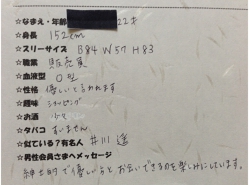 ☆なまえ・年齢 22才
☆身長 152cm
☆スリーサイズ B84 W57 H83
☆職業 販売員
☆血液型 O型
☆性格 優しいと言われます
☆趣味 ショッピング
☆お酒 少々
☆タバコ すいません
☆似ている?有名人 井川 遥
☆男性会員さまへメッセージ
紳士的で優しい方とお会いできるのを楽しみにしています。